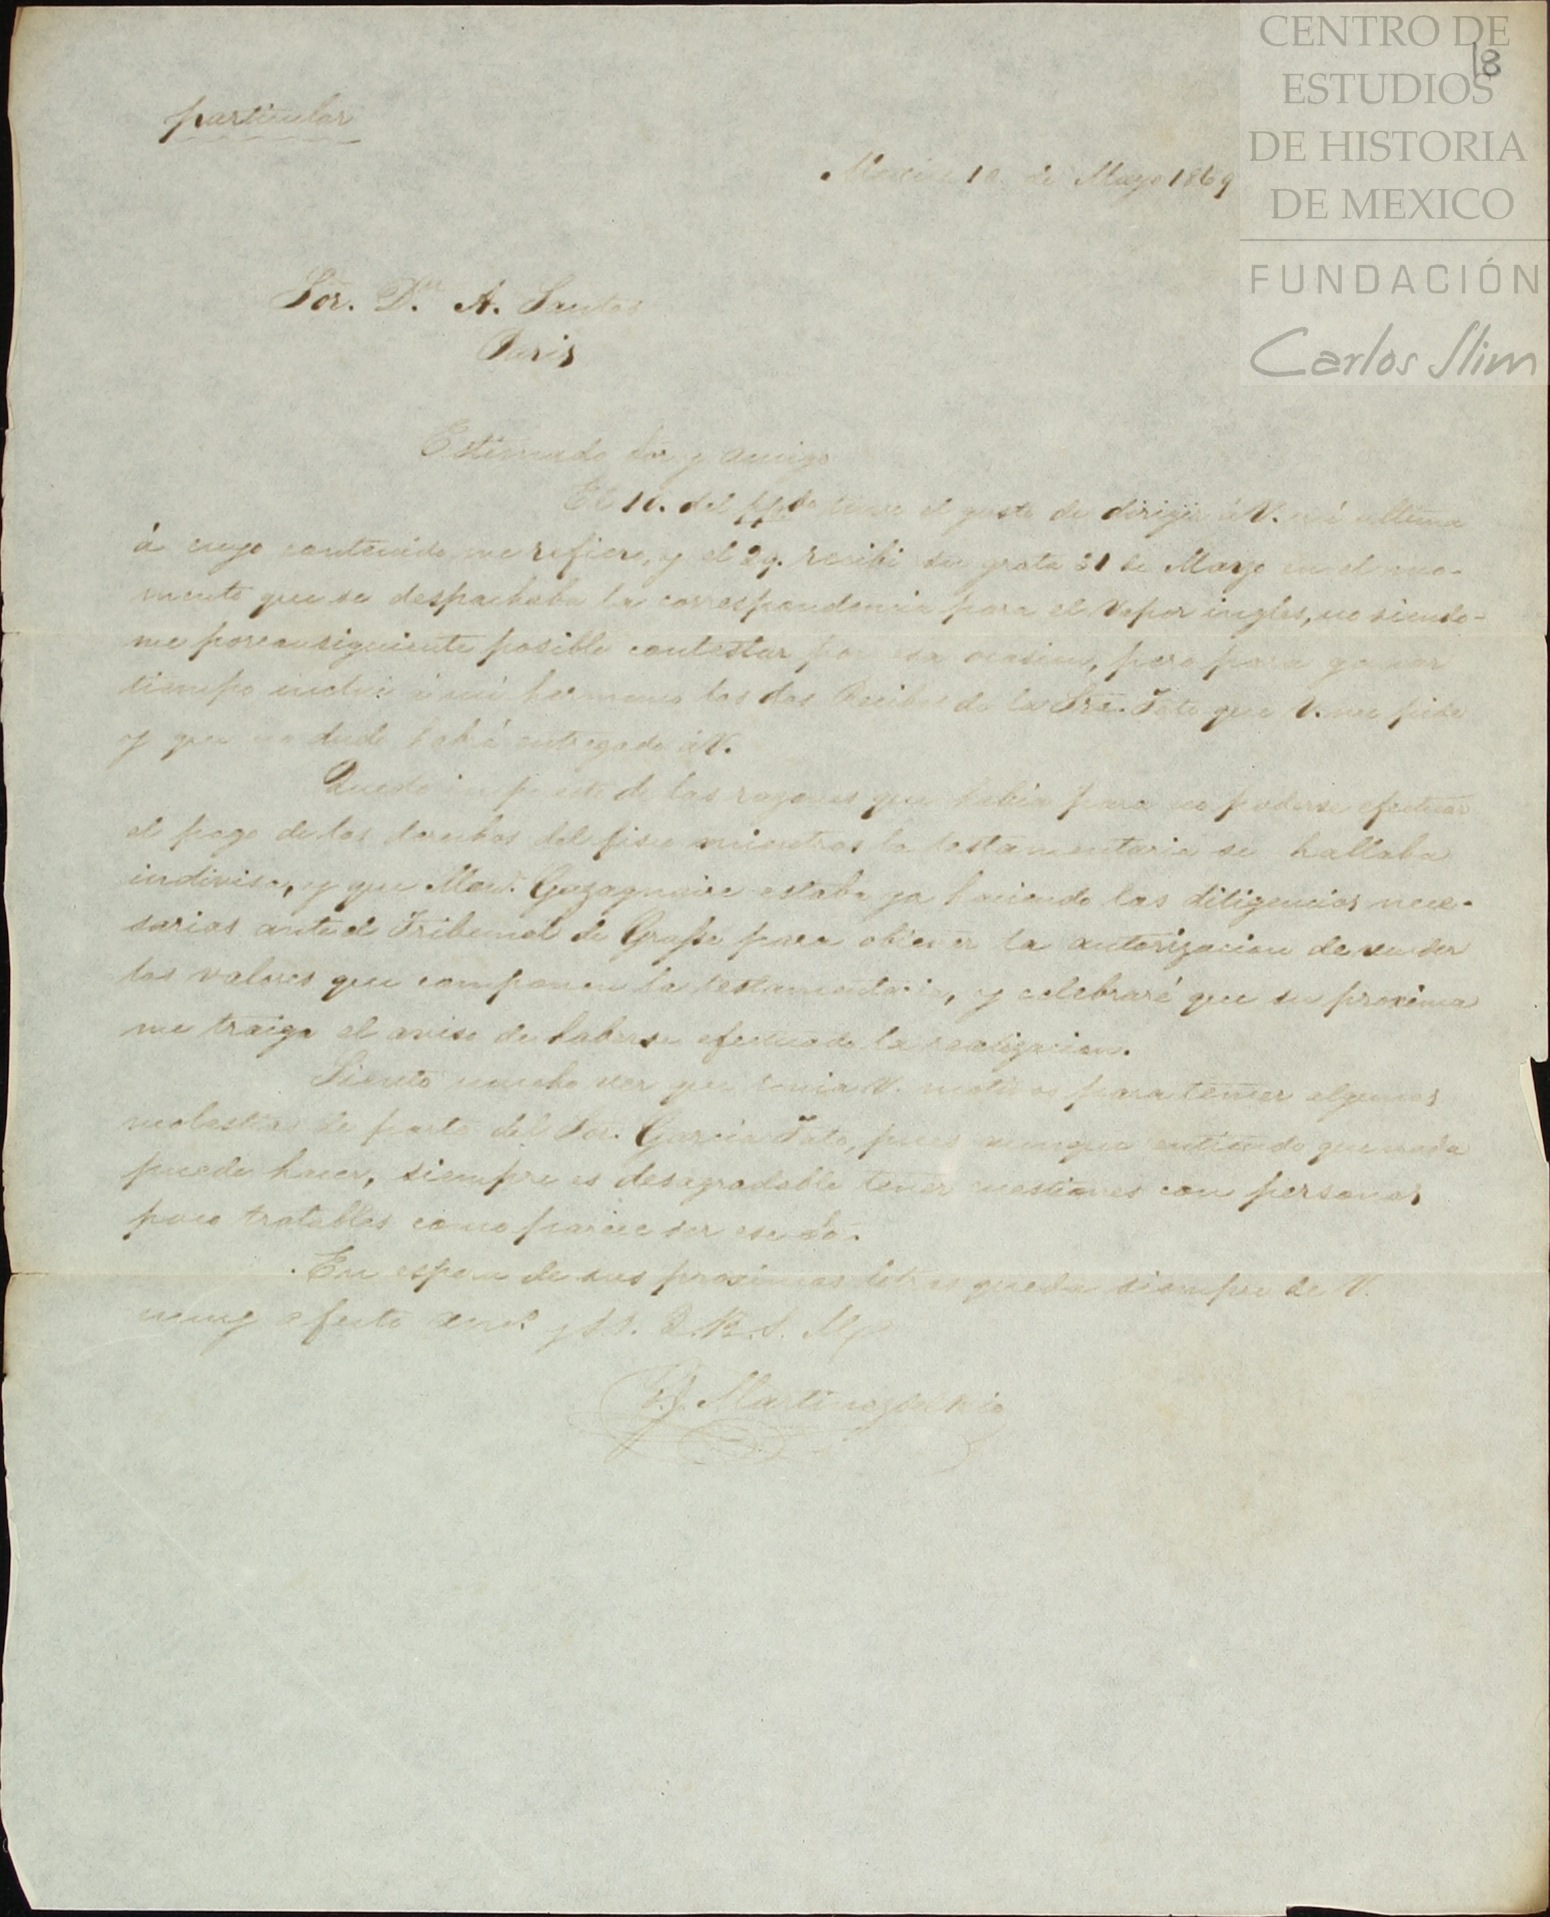 CENTRO DE
ESTUDIOS
DE HISTORIA
DE MEXICO
FUNDACIÓN
Carlos Slim
18
particular
Mexico 10 de Mayo 1869
Sor. Dn. A. Santos
Paris
Estimado Sor y amigo
El 10. del ppdo tuve el gusto de dirigir á V. mi ultima
á cuyo contenido me refiero, y el 29. recibi su grata 31 de Marzo en el mo-
mento que se despachaba la correspondencia para el Vapor inglés, no siendo-
me porconsiguiente posible contestar por esa ocasion, pero para ganar
tiempo inclui á mi hermano los dos Recibos de la Sra. Tato que V. me pide
y que no dudo habrá entregado á V.
Quedo impuesto de las razones que habia para no poderse efectuar
el pago de los derechos del fisco mientras la testamentaria se hallaba
indivisa, y que Mons. Gazagnaire estaba ya haciendo las diligencias nece-
sarias ante el Tribunal de Grasse para obtener la autorizacion de vender
los valores que componen la testamentaria, y celebraré que su proxima
me traiga el aviso de haberse efectuado la realizacion.
Siento mucho ver que tenia V. motivos para temer algunas
molestias de parte del Sor. Garcia Tato, pues aunque entiendo que nada
puede hacer, siempre es desagradable tener cuestiones con personas
poco tratables como parece ser ese Sor.
En espera de sus proximas letras queda siempre de V.
muy afecto amo. y S.S. Q.B.S.M.
Martinez del Rio